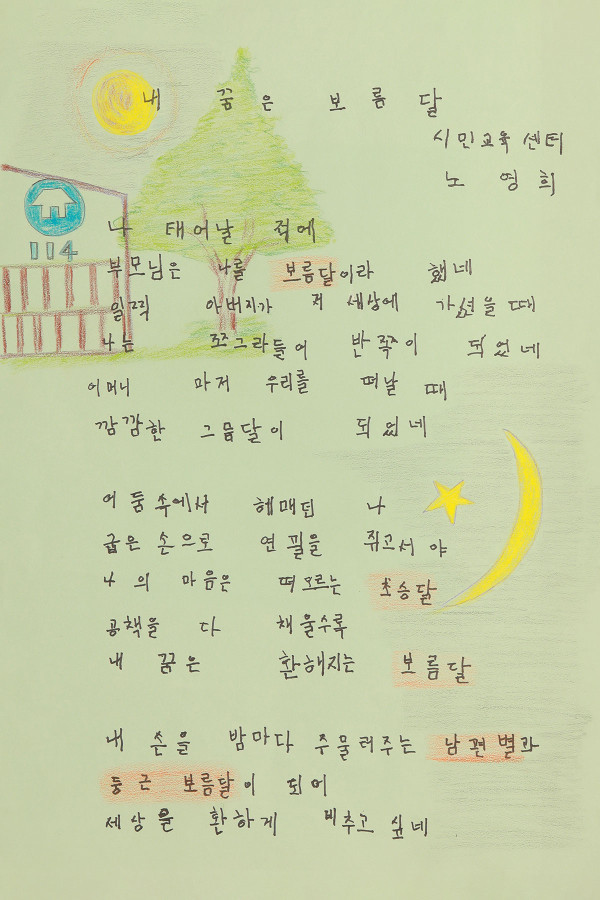 내 꿈은 보름달
시민교육센터
노영희
114
나 태어날 적에
부모님은 나를 보름달이라 했네
일찍 아버지가 저 세상에 가셨을 때
나는 쪼그라들어 반쪽이 되었네
어머니 마저 우리를 떠날 때
깜깜한 그믐달이 되었네
어둠 속에서 헤매던 나
굽은 손으로 연필을 쥐고서야
나의 마음은 떠오르는 초승달
공책을 다 채울수록
내 꿈은 환해지는 보름달
내 손을 밤마다 주물러주는 남편별과
둥근 보름달이 되어
세상을 환하게 비추고 싶네